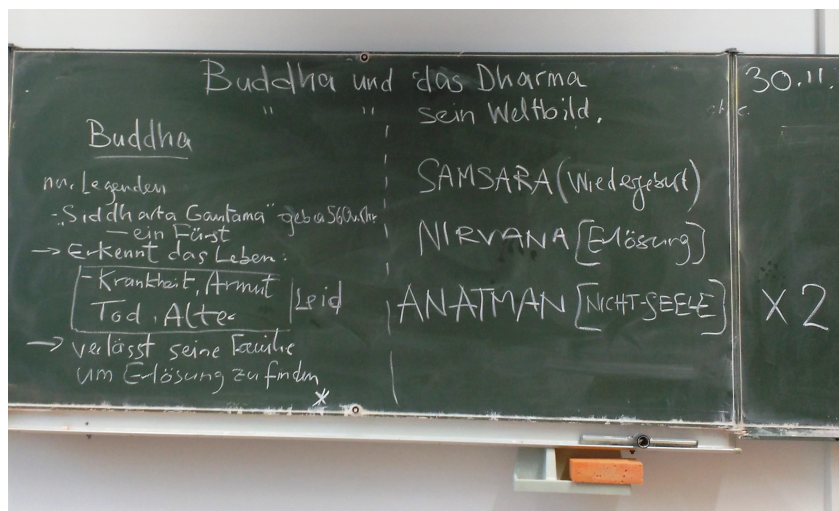 Buddha und das Dharma
" " sein Weltbild.
Buddha
nur Legenden
- "Siddharta Gautama" geb ca 560 v Chr
— ein Fürst
→ Erkennt das Leben:
- Krankheit, Armut
Tod, Alter
Leid
→ verlässt seine Familie
um Erlösung zu finden
*
SAMSARA (Wiedergeburt)
NIRVANA [Erlösung]
ANATMAN [NICHT-SEELE]
30.11.
x 2